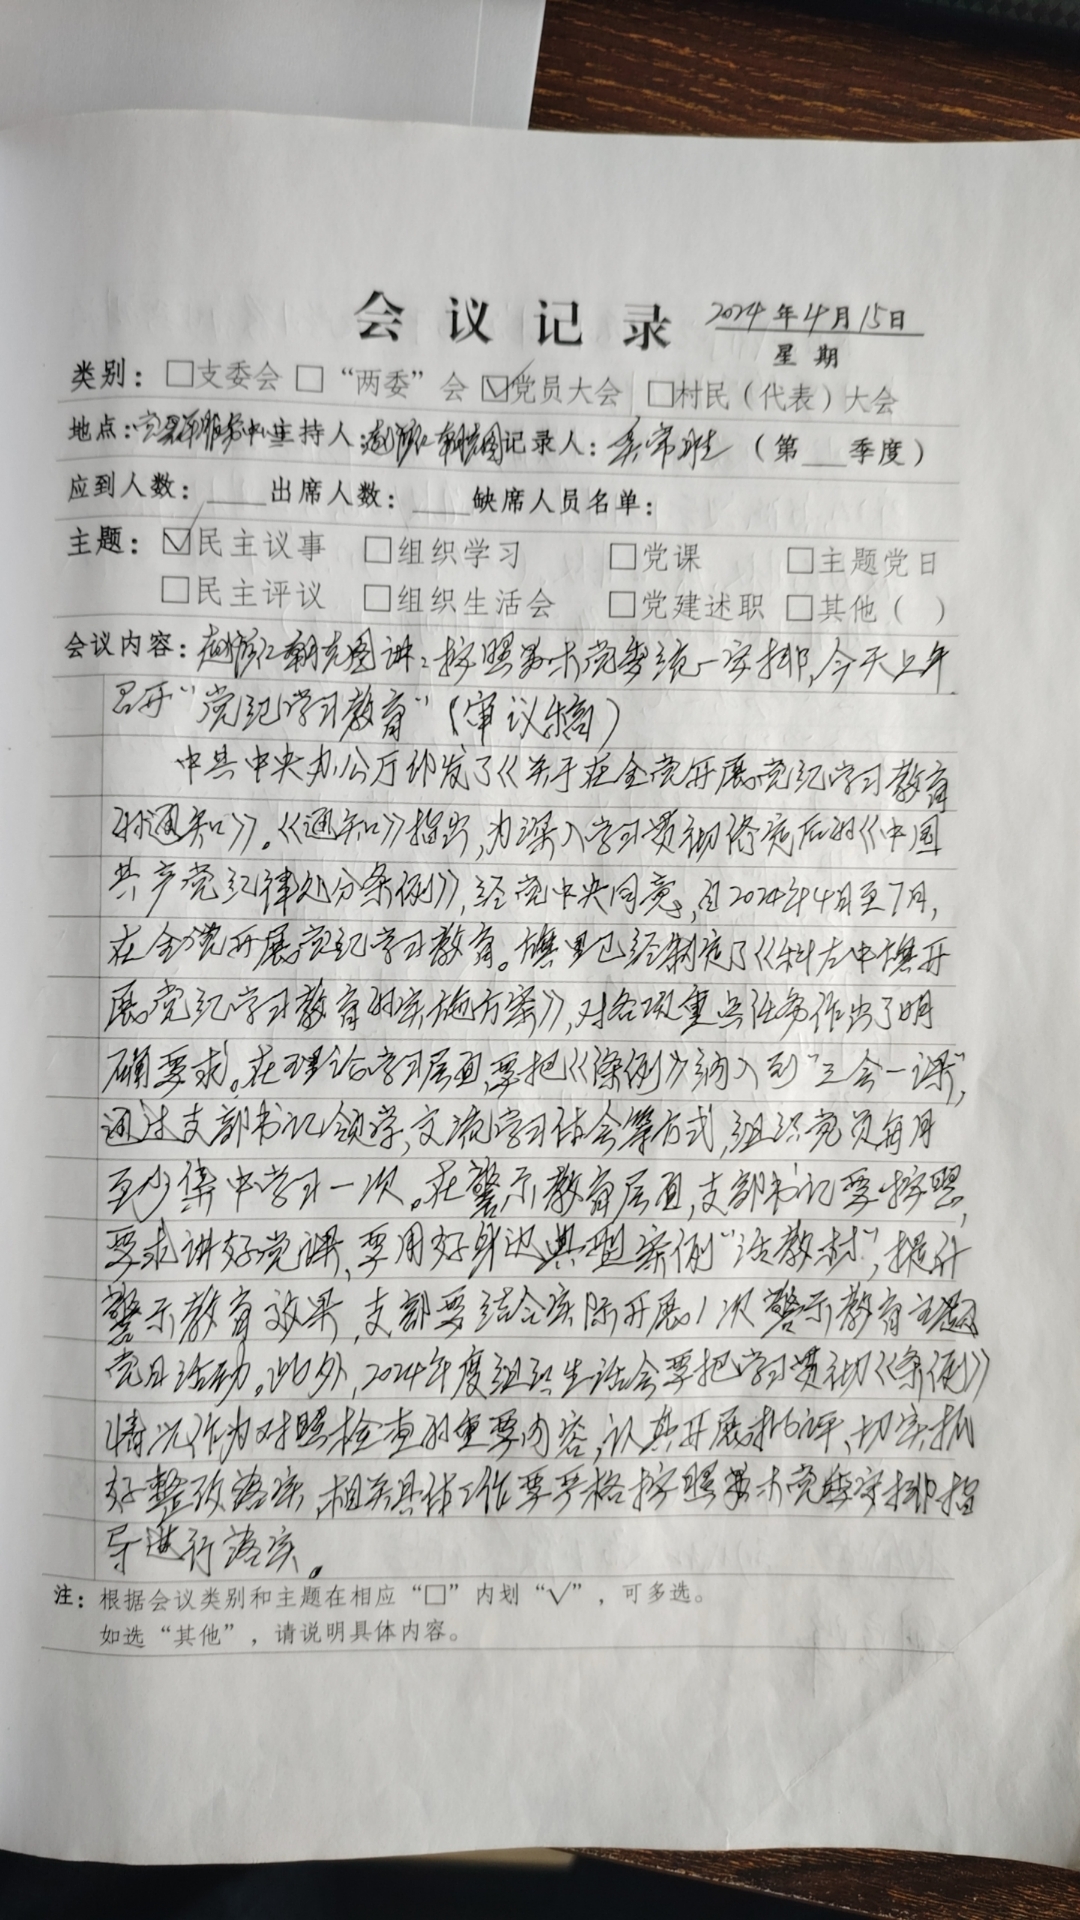 会议记录 2024年4月15日
星期
类别：□支委会 □“两委”会 ☑党员大会 □村民（代表）大会
地点：党群服务中心 主持人： 记录人： （第 季度）
应到人数： 出席人数： 缺席人员名单：
主题：☑民主议事 □组织学习 □党课 □主题党日
□民主评议 □组织生活会 □党建述职 □其他（ ）
会议内容： 讲：按照 木党委统一安排，今天上午
召开“党纪学习教育”（审议稿）
中共中央办公厅印发了《关于在全党开展党纪学习教育
的通知》。《通知》指出，为深入学习贯彻修定后的《中国
共产党纪律处分条例》，经党中央同意，自2024年4月至7月，
在全党开展党纪学习教育。旗里已经制定了《科左中旗开
展党纪学习教育的实施方案》，对各项重点任务作出了明
确要求。在理论学习层面，要把《条例》纳入到“三会一课”，
通过支部书记领学，交流学习体会等方式，组织党员每月
至少集中学习一次。在警示教育层面，支部书记要按照，
要求讲好党课，要用好身边典型案例“活教材”，提升
警示教育效果，支部要结合实际开展1次警示教育主题
党日活动。此外，2024年度组织生活会要把学习贯彻《条例》
情况作为对照检查的重要内容，认真开展批评、切实抓
好整改落实，相关具体工作要严格按照 木党委安排指
导进行落实。
注：根据会议类别和主题在相应“□”内划“√”，可多选。
如选“其他”，请说明具体内容。